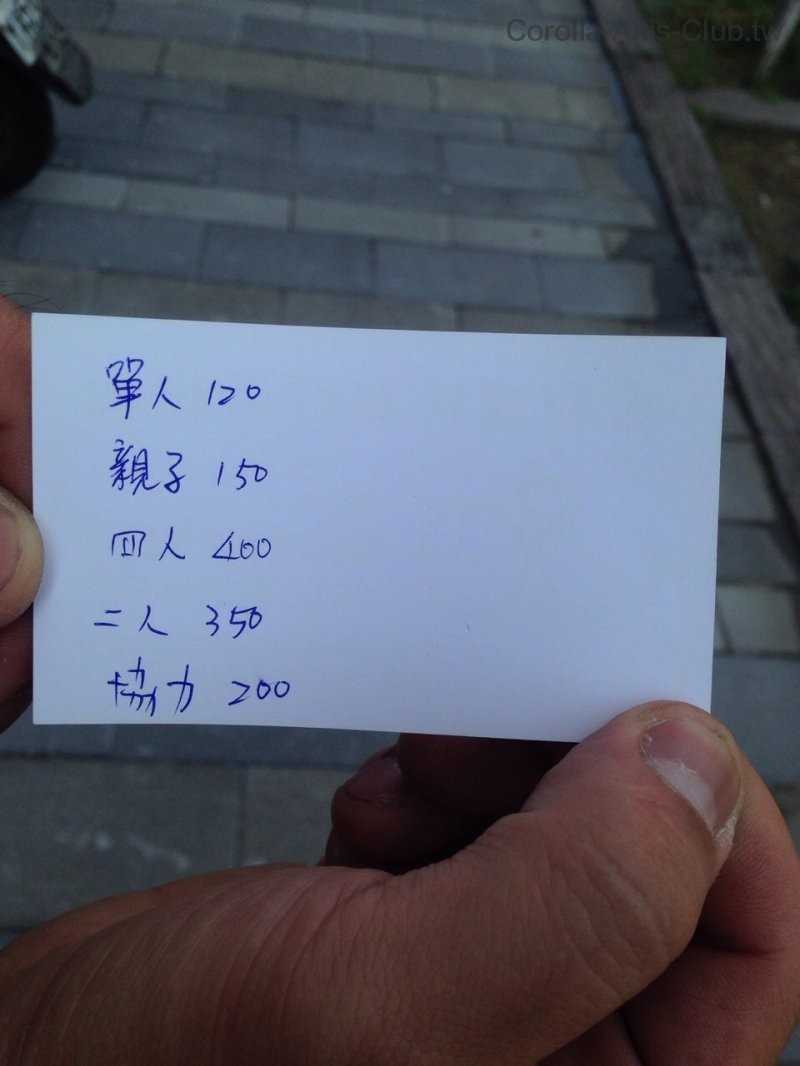 Corolla-Altis-Club.tw
單人 120
親子 150
四人 400
二人 350
協力 200